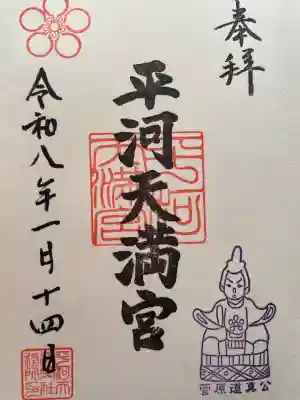 奉拝
平河天満宮
令和八年一月十四日
菅原道真公